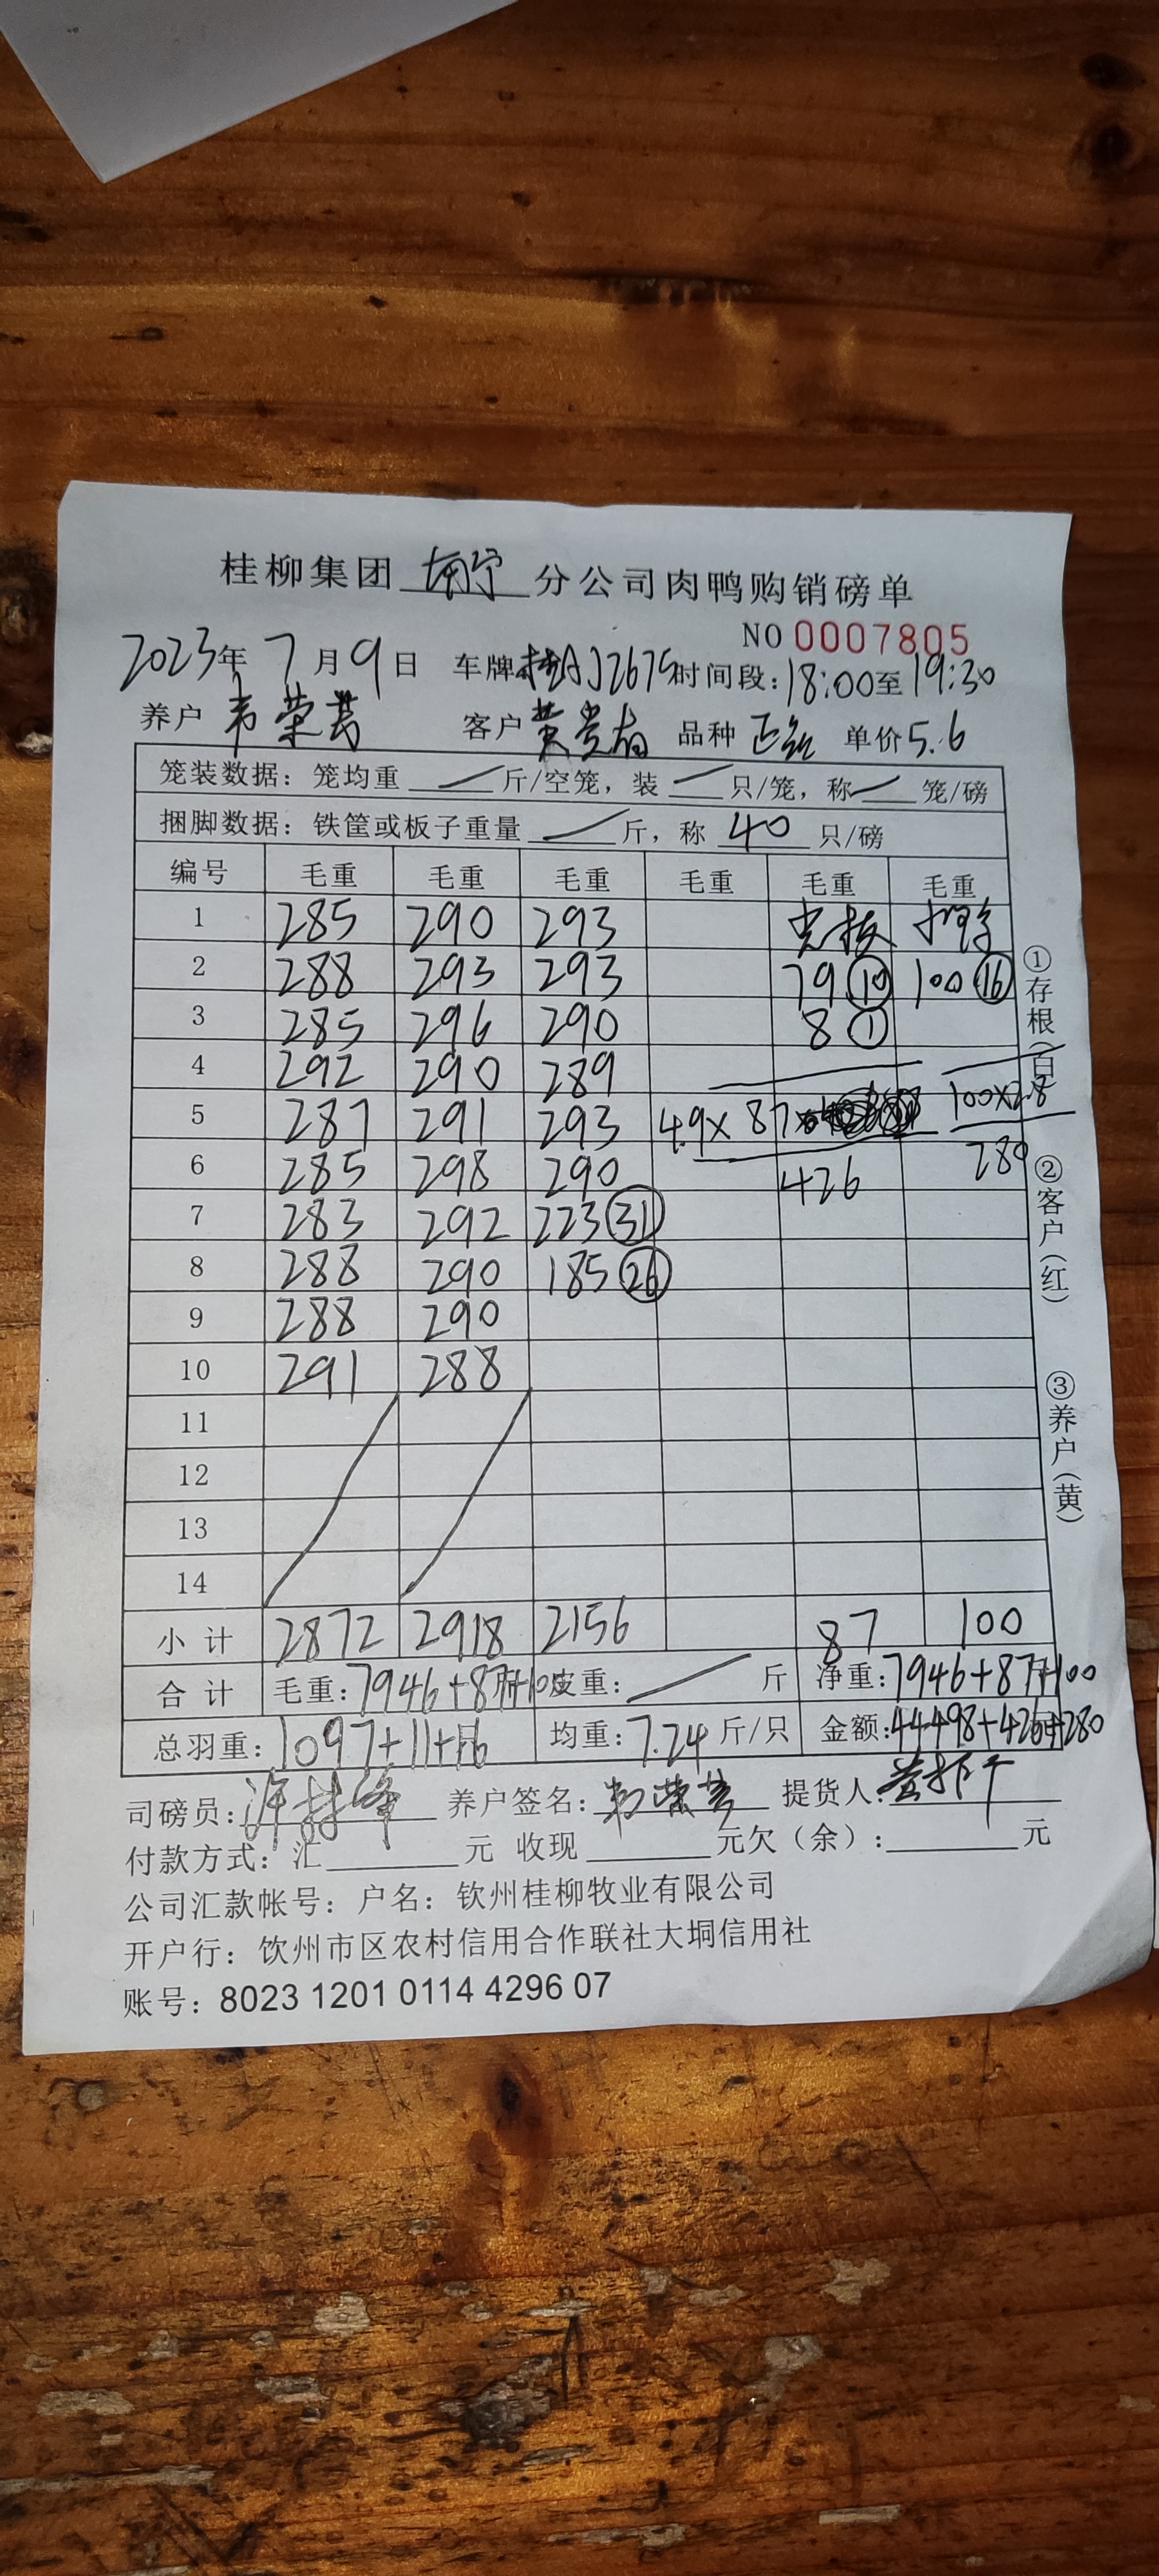 桂柳集团 南宁 分公司肉鸭购销磅单
NO 0007805
2023年 7 月 9 日 车牌 桂AJ2675 时间段: 18:00至19:30
养户 韦荣芬 客户 黄贵有 品种 单价 5.6
笼装数据: 笼均重 斤/空笼, 装 只/笼, 称 笼/磅
捆脚数据: 铁筐或板子重量 斤, 称 40 只/磅
编号 毛重 毛重 毛重 毛重 毛重 毛重
1 285 290 293
2 288 293 293 79 ⑩ 100 ⑯
3 285 296 290 8 ①
4 292 290 289
5 287 291 293 4.9×87 100×2.8
6 285 298 290 426 280
7 283 292 223 ㉛
8 288 290 185 ㉖
9 288 290
10 291 288
11
12
13
14
小计 2872 2918 2156 87 100
合计 毛重: 7946+87+100 皮重: 斤 净重: 7946+87+100
总羽重: 1097+11+16 均重: 7.24 斤/只 金额: 44498+426+280
司磅员: 养户签名: 提货人:
付款方式: 汇 元 收现 元欠（余）: 元
公司汇款帐号: 户名: 钦州桂柳牧业有限公司
开户行: 饮州市区农村信用合作联社大垌信用社
账号: 8023 1201 0114 4296 07
①存根（白）
②客户（红）
③养户（黄）